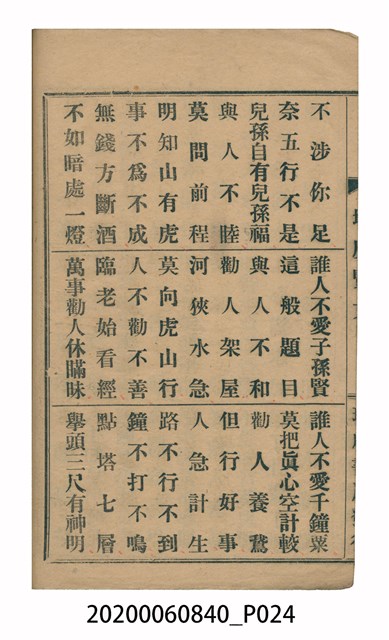 不涉你足　誰人不愛子孫賢　誰人不愛千鐘粟
奈五行不是　這般題目　莫把眞心空計較
兒孫自有兒孫福　與人不和　勸人養鵞
與人不睦　勸人架屋　但行好事
莫問前程　河狹水急　人急計生
明知山有虎　莫向虎山行　路不行不到
事不爲不成　人不勸不善　鐘不打不鳴
無錢方斷酒　臨老始看經　點塔七層
不如暗處一燈　萬事勸人休瞞昧　舉頭三尺有神明
20200060840_P024